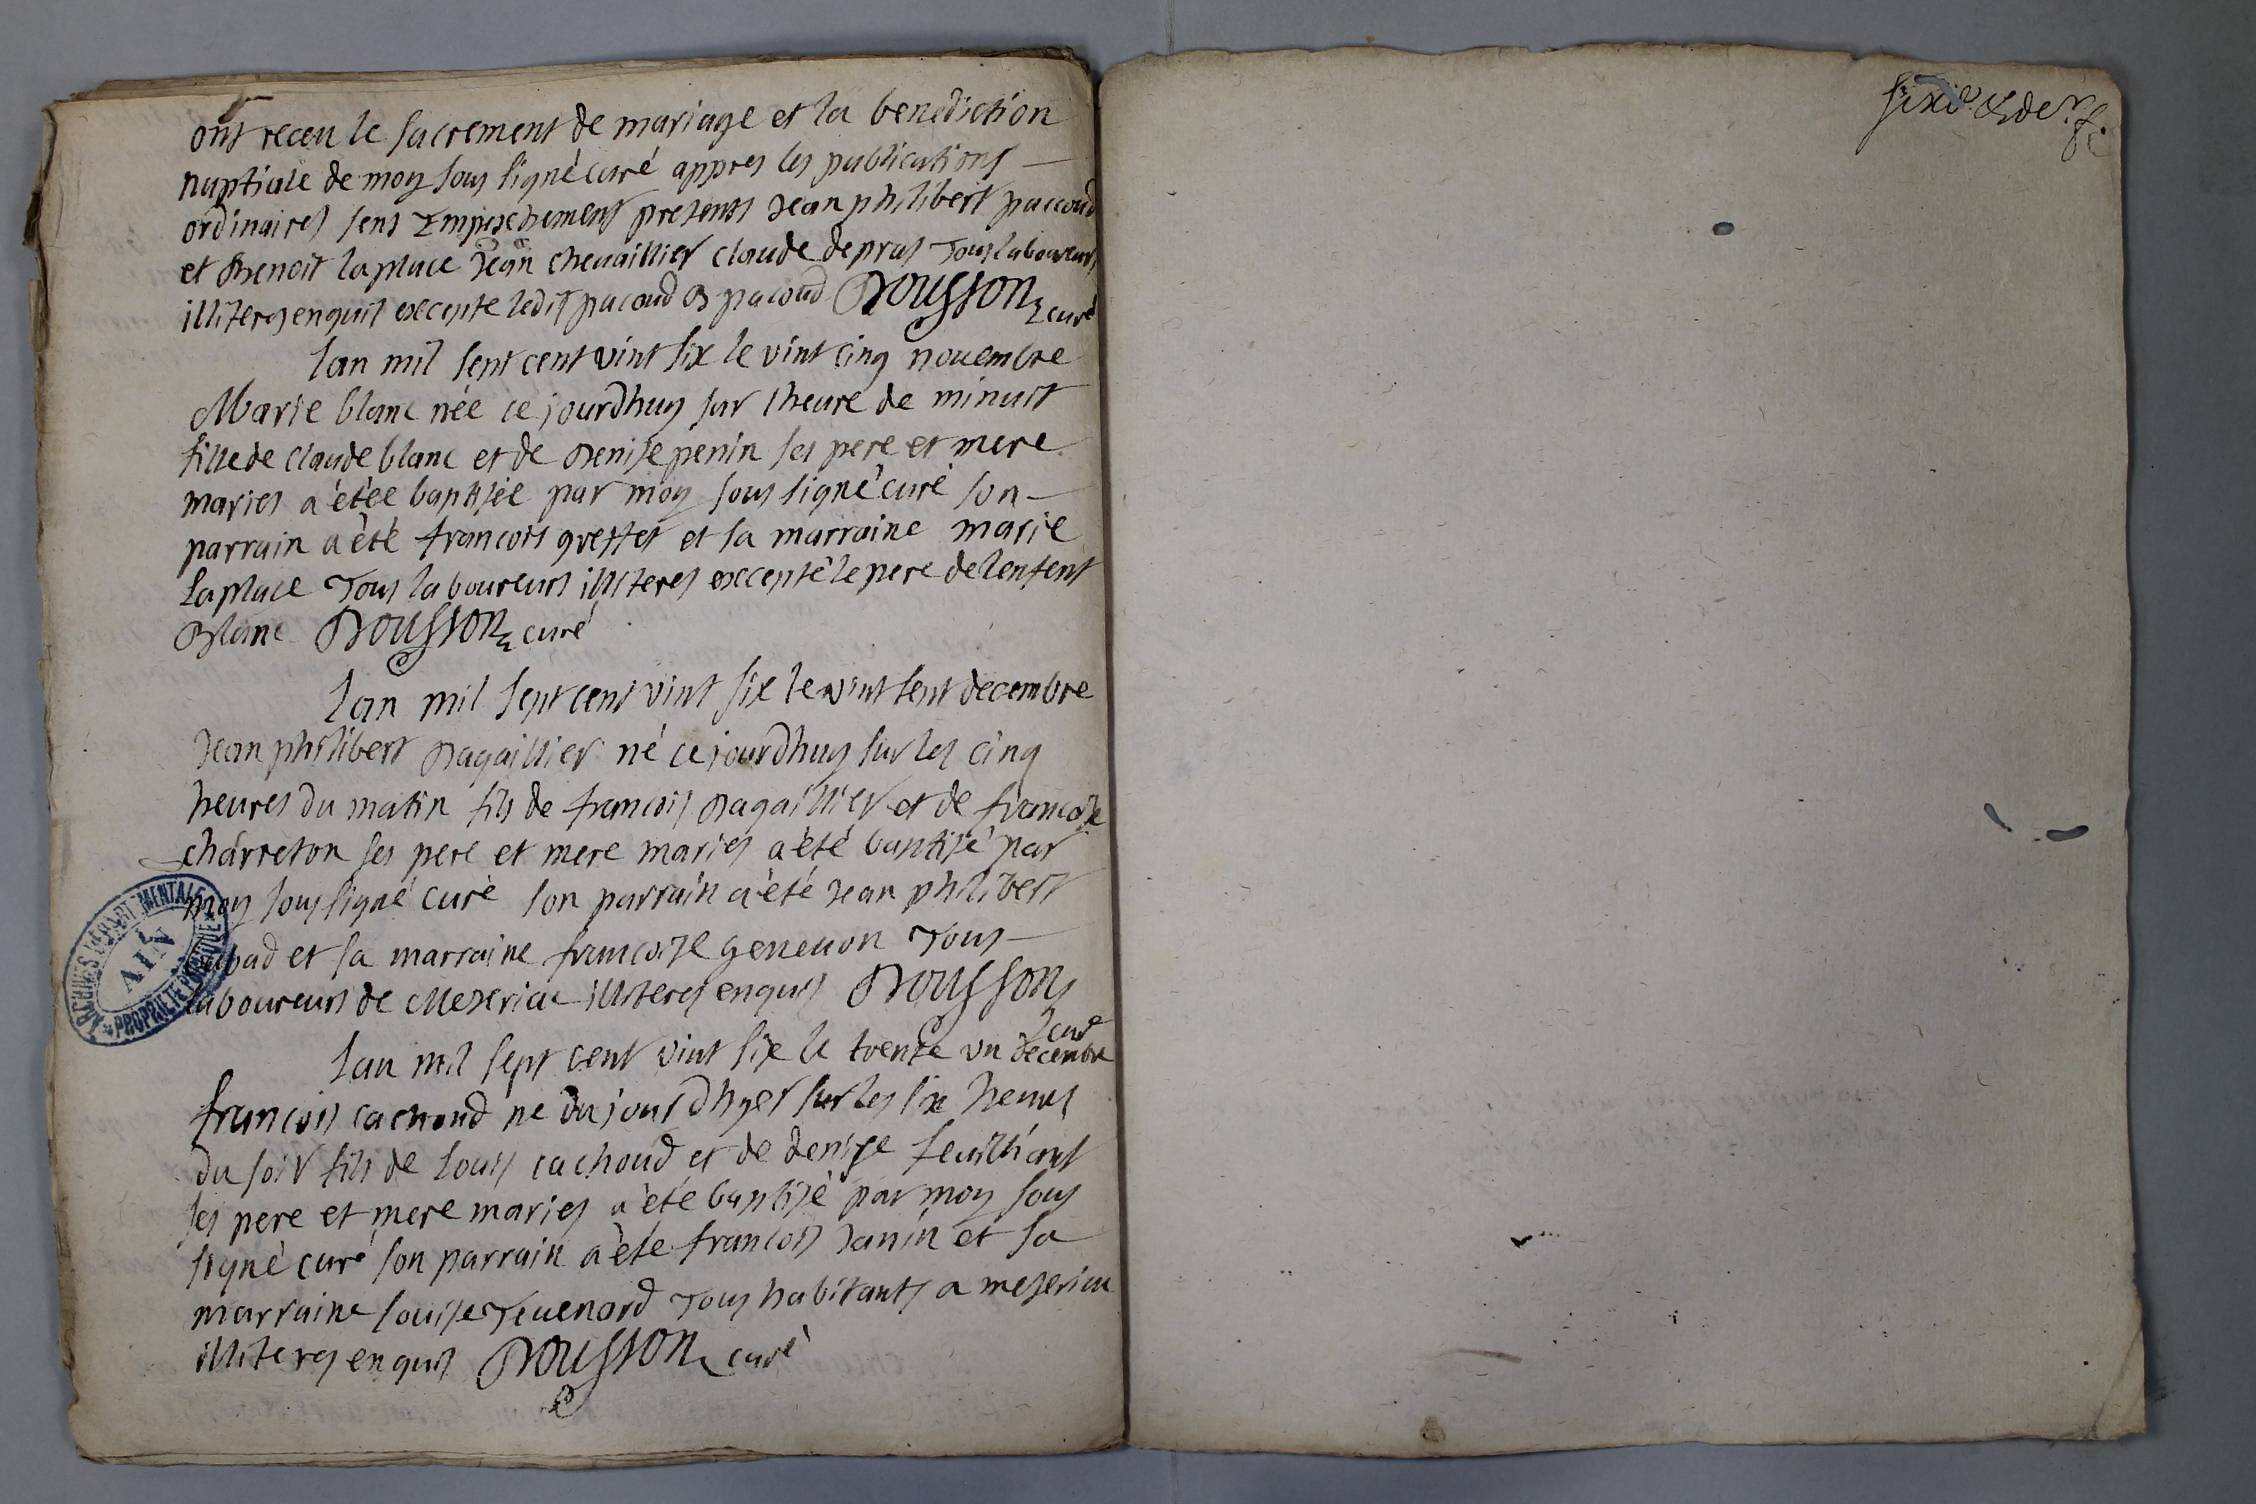 ont receu le sacrement de mariage et la benediction
nuptiale de moy sous signé curé appres les publications
ordinaires sens Empeschement presents Jean philibert paccoud
et Benoit laplace Jean chevaillier claude depras Tous laboureurs
illiteres enquis excepte ledit pacoud B pacoud Bousson curé
lan mil sept cent vint six le vint cinq novembre
Marie blanc née ce jourdhuy sur lheure de minuit
fille de claude blanc et de Denise penin ses pere et mere
maries a étée baptisée par moy sous signé curé son
parrain a été francois greffet et sa marraine marie
Laplace Tous laboureurs illiteres excepté le pere de lenfent
Blanc Bousson curé
Lan mil sept cent vint six le vint sept decembre
Jean philibert Dagaillier né ce jourdhuy sur les cinq
heures du matin fils de francois Dagaillier et de francoise
charreton ses pere et mere maries a été baptisé par
moy sous signé curé son parrain a été Jean philibert
et sa marraine francoise genevon Tous
laboureurs de Mezeriac illiteres enquis Bousson
curé
Lan mil sept cent vint six le trente un decembre
francois cachoud ne du jour dhyer sur les six heures
du soir fils de Louis cachoud et de denise feuilliant
ses pere et mere maries a été baptisé par moy sous
signé curé son parrain a été francois Janin et sa
marraine Louise Tevenard Tous habitants a mezeriac
illiteres enquis Bousson curé
ARCHIVES DEPARTEMENTALES
AIN
PROPRIETE PUBLIQUE